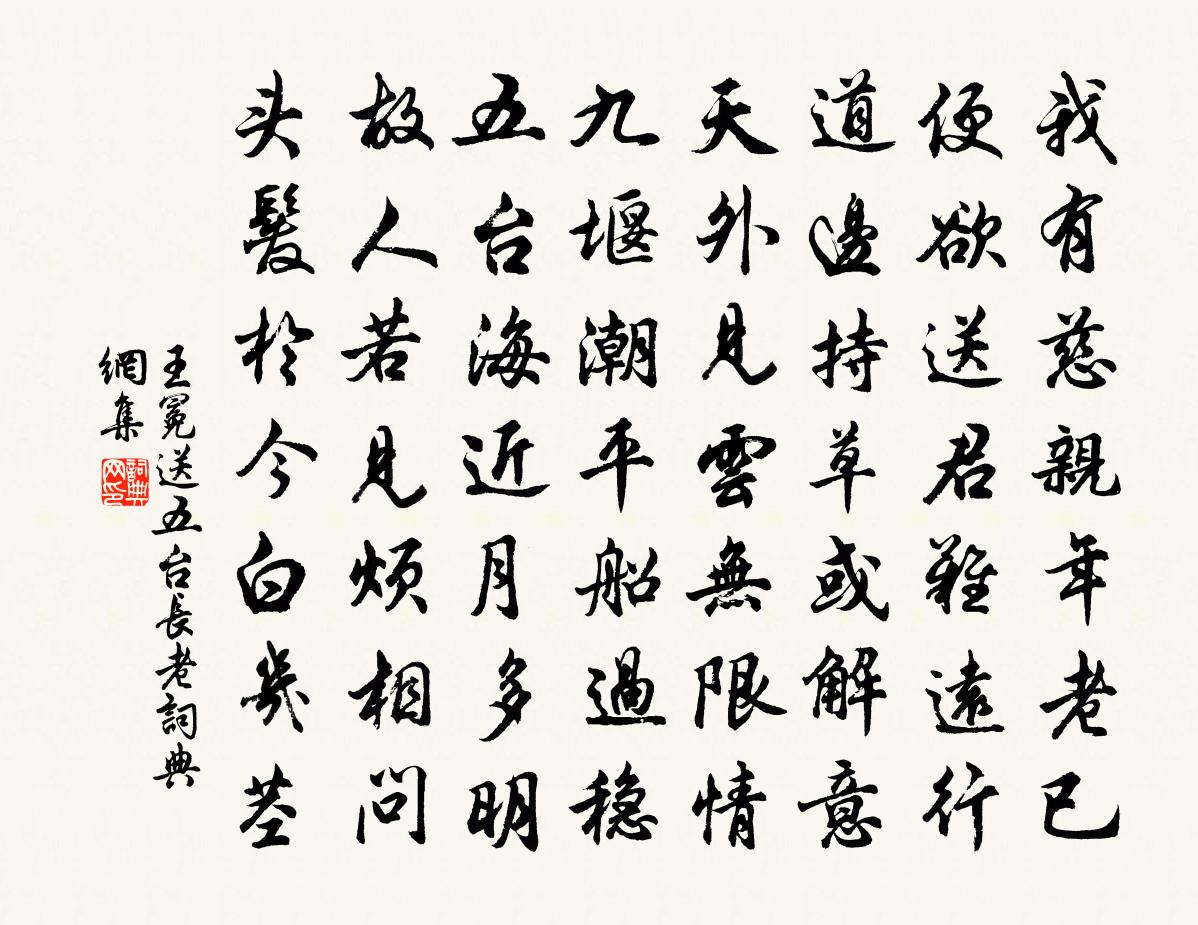 我有慈親年老已
便欲送君難遠行
道邊持草或解意
天外見雲無限情
九堰潮平船過稳
五台海近月多明
故人若見烦相問
头髮於今白幾茎
王冕送五台長老詞典
網集
詞典
网印